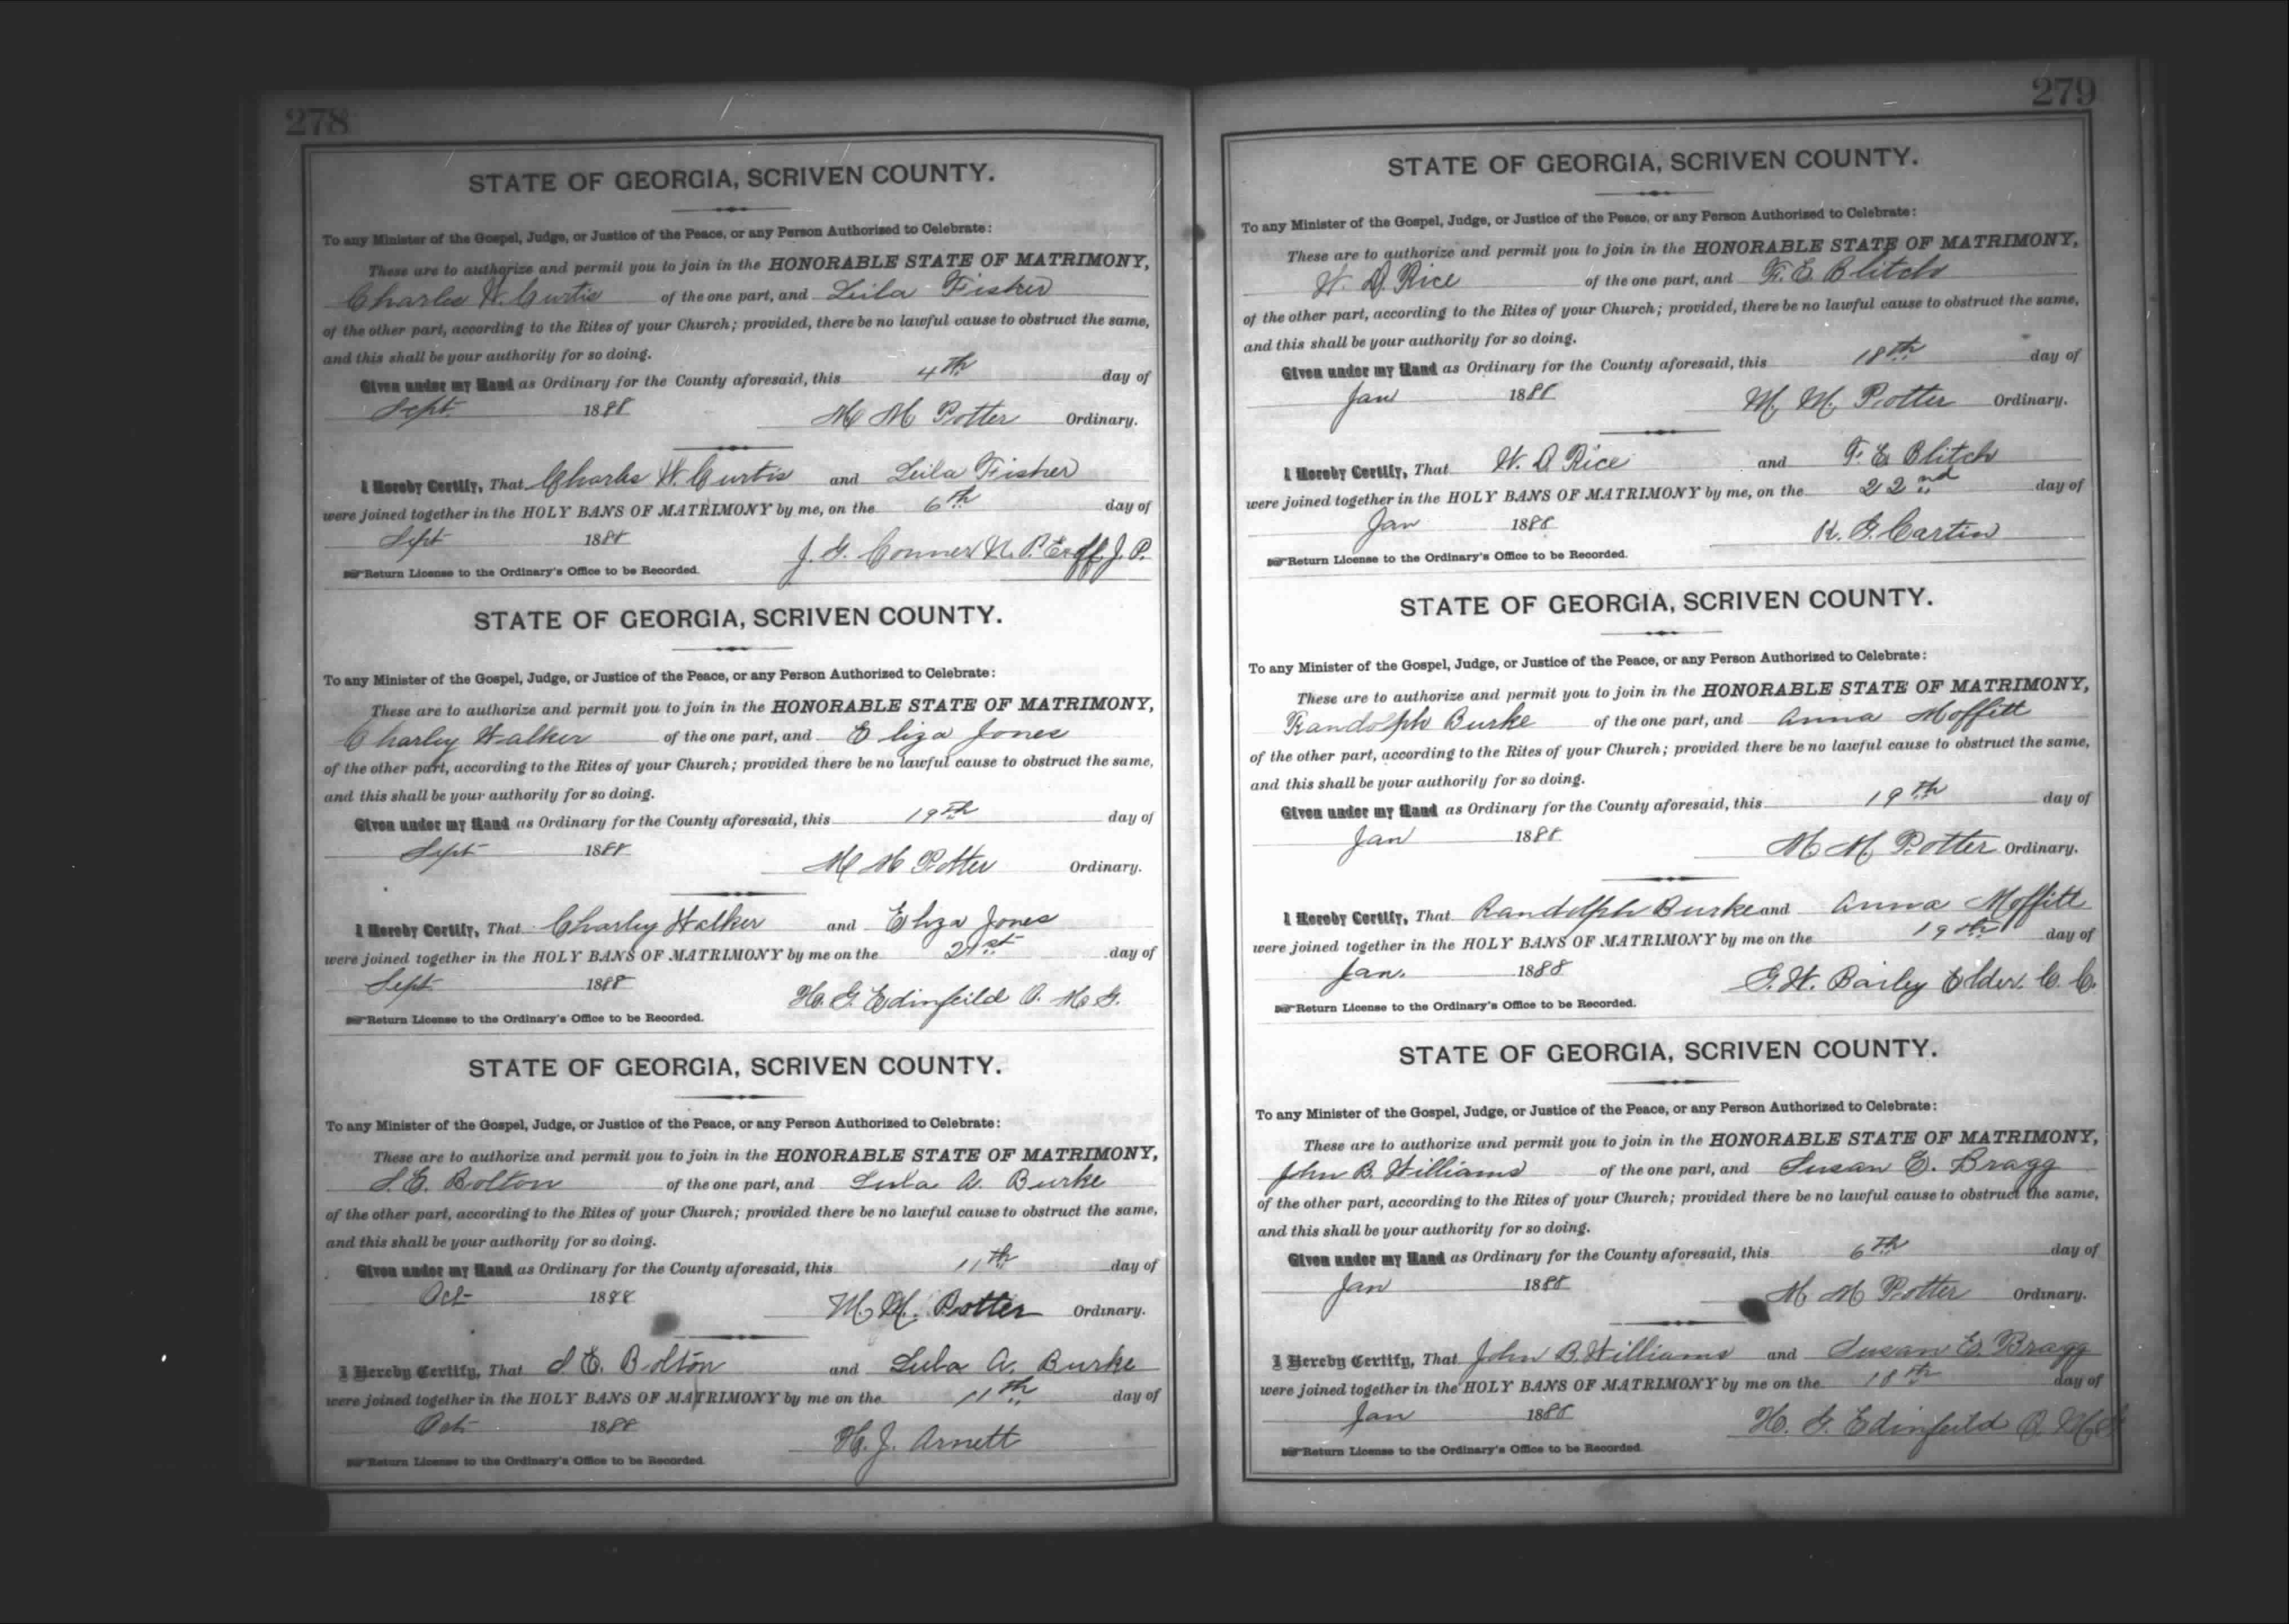 278
STATE OF GEORGIA, SCRIVEN COUNTY.
To any Minister of the Gospel, Judge, or Justice of the Peace, or any Person Authorized to Celebrate:
These are to authorize and permit you to join in the HONORABLE STATE OF MATRIMONY,
Charles W. Curtis of the one part, and Leila Fisher
of the other part, according to the Rites of your Church; provided, there be no lawful cause to obstruct the same,
and this shall be your authority for so doing.
Given under my Hand as Ordinary for the County aforesaid, this 4th day of
Sept 1888 M M Potter Ordinary.
I Hereby Certify, That Charles W. Curtis and Leila Fisher
were joined together in the HOLY BANS OF MATRIMONY by me, on the 6th day of
Sept 1888 J. G. Conner N. P. Exoff J. P.
Return License to the Ordinary's Office to be Recorded.
STATE OF GEORGIA, SCRIVEN COUNTY.
To any Minister of the Gospel, Judge, or Justice of the Peace, or any Person Authorized to Celebrate:
These are to authorize and permit you to join in the HONORABLE STATE OF MATRIMONY,
Charley Walker of the one part, and Eliza Jones
of the other part, according to the Rites of your Church; provided there be no lawful cause to obstruct the same,
and this shall be your authority for so doing.
Given under my Hand as Ordinary for the County aforesaid, this 19th day of
Sept 1888 M M Potter Ordinary.
I Hereby Certify, That Charley Walker and Eliza Jones
were joined together in the HOLY BANS OF MATRIMONY by me on the 21st day of
Sept 1888 H. G. Edinfeild O. M. G.
Return License to the Ordinary's Office to be Recorded.
STATE OF GEORGIA, SCRIVEN COUNTY.
To any Minister of the Gospel, Judge, or Justice of the Peace, or any Person Authorized to Celebrate:
These are to authorize and permit you to join in the HONORABLE STATE OF MATRIMONY,
S. E. Bolton of the one part, and Lula A. Burke
of the other part, according to the Rites of your Church; provided there be no lawful cause to obstruct the same,
and this shall be your authority for so doing.
Given under my Hand as Ordinary for the County aforesaid, this 11th day of
Oct 1888 M. M. Potter Ordinary.
I Hereby Certify, That S. E. Bolton and Lula A. Burke
were joined together in the HOLY BANS OF MATRIMONY by me on the 11th day of
Oct 1888 H. J. Arnett
Return License to the Ordinary's Office to be Recorded.
279
STATE OF GEORGIA, SCRIVEN COUNTY.
To any Minister of the Gospel, Judge, or Justice of the Peace, or any Person Authorized to Celebrate:
These are to authorize and permit you to join in the HONORABLE STATE OF MATRIMONY,
W. D. Rice of the one part, and F. E. Blitch
of the other part, according to the Rites of your Church; provided, there be no lawful cause to obstruct the same,
and this shall be your authority for so doing.
Given under my Hand as Ordinary for the County aforesaid, this 18th day of
Jan 1888 M. M. Potter Ordinary.
I Hereby Certify, That W. D Rice and F. E. Blitch
were joined together in the HOLY BANS OF MATRIMONY by me, on the 22nd day of
Jan 1888 K. G. Cartin
Return License to the Ordinary's Office to be Recorded.
STATE OF GEORGIA, SCRIVEN COUNTY.
To any Minister of the Gospel, Judge, or Justice of the Peace, or any Person Authorized to Celebrate:
These are to authorize and permit you to join in the HONORABLE STATE OF MATRIMONY,
Randolph Burke of the one part, and Anna Moffitt
of the other part, according to the Rites of your Church; provided there be no lawful cause to obstruct the same,
and this shall be your authority for so doing.
Given under my Hand as Ordinary for the County aforesaid, this 19th day of
Jan 1888 M M. Potter Ordinary.
I Hereby Certify, That Randolph Burke and Anna Moffitt
were joined together in the HOLY BANS OF MATRIMONY by me on the 19th day of
Jan. 1888 G. W. Bailey Elder. C. C.
Return License to the Ordinary's Office to be Recorded.
STATE OF GEORGIA, SCRIVEN COUNTY.
To any Minister of the Gospel, Judge, or Justice of the Peace, or any Person Authorized to Celebrate:
These are to authorize and permit you to join in the HONORABLE STATE OF MATRIMONY,
John B. Williams of the one part, and Susan E. Bragg
of the other part, according to the Rites of your Church; provided there be no lawful cause to obstruct the same,
and this shall be your authority for so doing.
Given under my Hand as Ordinary for the County aforesaid, this 6th day of
Jan 1888 M M Potter Ordinary.
I Hereby Certify, That John B. Williams and Susan E. Bragg
were joined together in the HOLY BANS OF MATRIMONY by me on the 18th day of
Jan 1888 H. G. Edinfeild O. M. G
Return License to the Ordinary's Office to be Recorded.